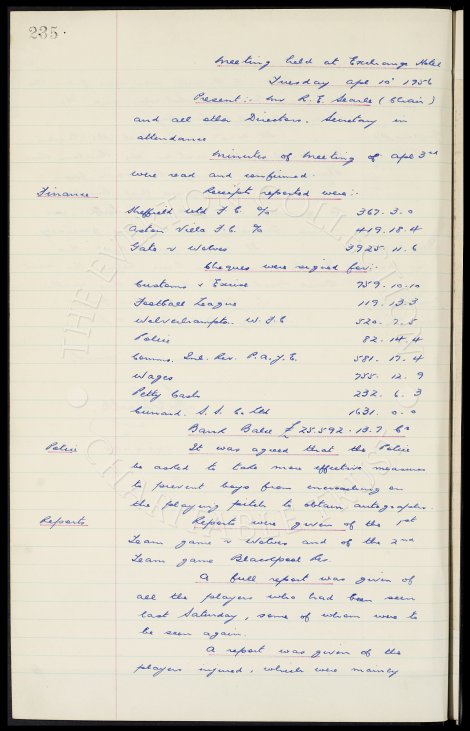 235.
Meeting held at Exchange Hotel
Tuesday Apl 10th 1956
Present:- Mr R. E. Searle (Chair)
and all other Directors. Secretary in
attendance
Minutes of Meeting of Apl 3rd
were read and confirmed.
Finance Receipts reported were:-
Sheffield Utd F.C. % 367.3.0
Aston Villa F.C. % 419.18.4
Gate v Wolves 3925.11.6
Cheques were signed for:-
Customs & Excise 759.10.10
Football League 119.13.3
Wolverhampton. W. F.C 520.7.5
Police 82.14.4
Comms. Inl. Rev. P.A.Y.E. 581.17.4
Wages 755.12.9
Petty Cash 232.6.3
Cunard. S.S. Co Ltd 1631.0.0
Bank Balce £25.592.13.7. Cr
Police It was agreed that the Police
be asked to take more effective measures
to prevent boys from encroaching on
the playing pitch to obtain autographs.
Reports Reports were given of the 1st
Team game v Wolves and of the 2nd
Team game Blackpool Res.
A full report was given of
all the players who had been seen
last Saturday, some of whom were to
be seen again.
A report was given of the
players injured, which were mainly
THE EVERTON COLLECTION
CHARITABLE TRUST